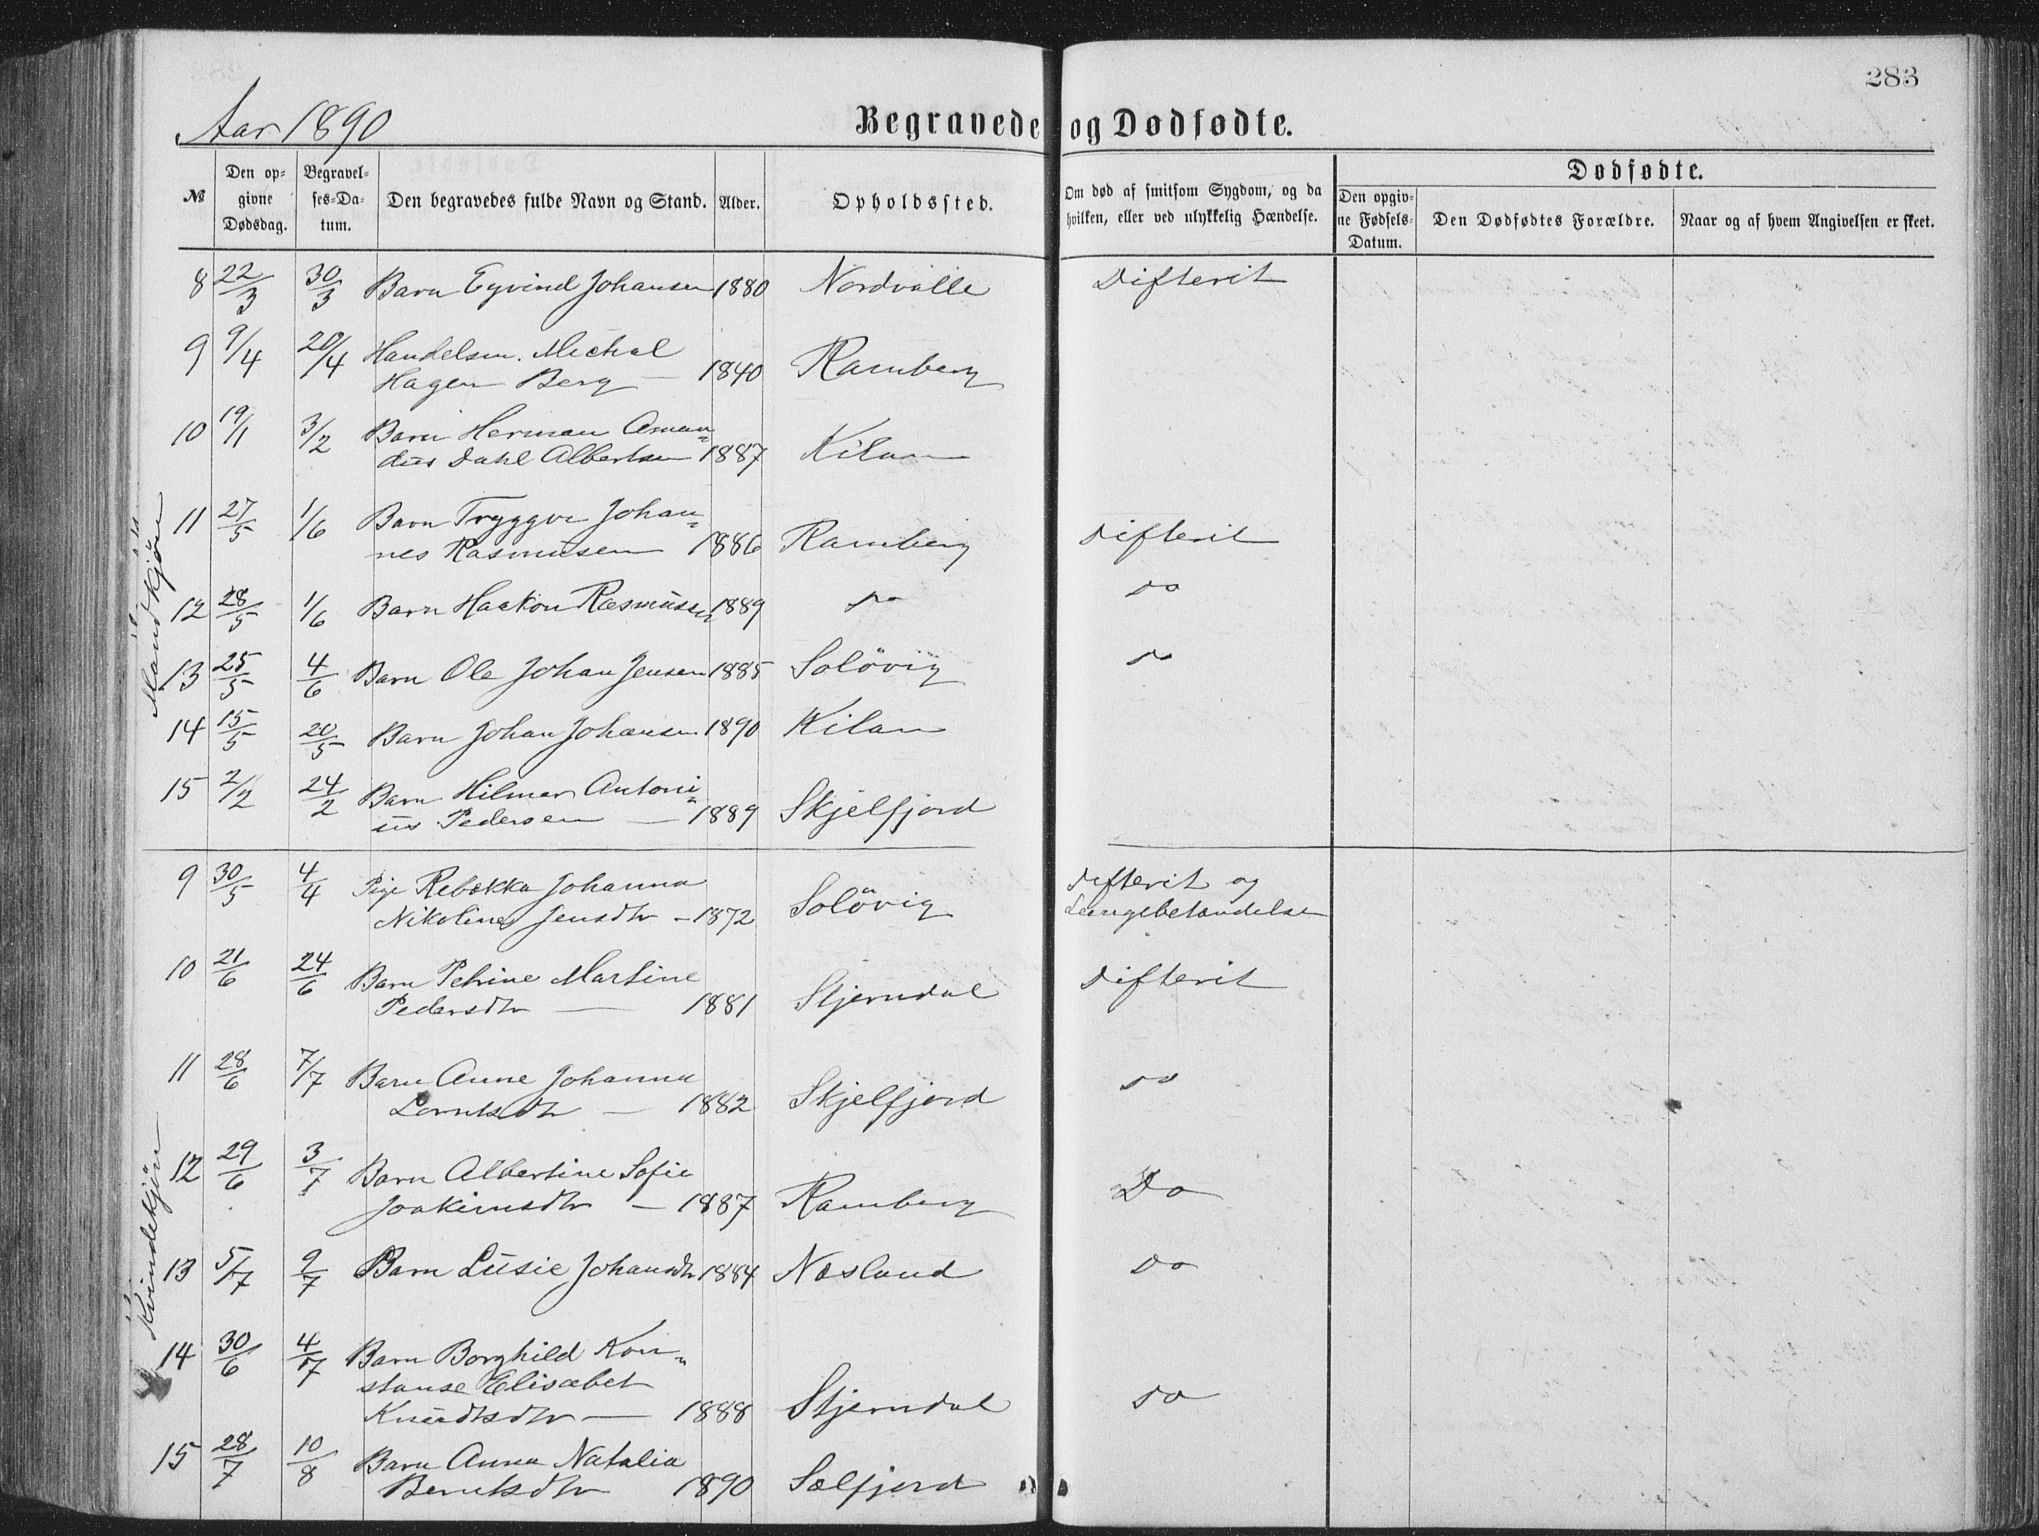 283
Aar 1890
Begravede og Dødfødte.
№
Den opgivne Dødsdag.
Begravelses-Datum.
Den begravedes fulde Navn og Stand.
Alder.
Opholdssted.
Om død af smitsom Sygdom, og da hvilken, eller ved ulykkelig Hændelse.
Dødfødte.
Den opgivne Fødsels-Datum.
Den Dødfødtes Forældre.
Naar og af hvem Angivelsen er skeet.
Mandkjøn
8 22/3 30/3 Barn Eyvind Johansen 1880 Nordvålle Difterit
9 9/4 20/4 Handelsm. Mechal
Hagen Berg — 1840 Ramberg
10 19/1 3/2 Barn Herman Aman=
dus Dahl Albertsen 1887 Kilan
11 27/5 1/6 Barn Tryggve Johan=
nes Rasmusen 1886 Ramberg Difterit
12 28/5 1/6 Barn Haakon Rasmussen 1889 do do
13 25/5 4/6 Barn Ole Johan Jensen 1885 Solövig do
14 15/5 20/5 Barn Johan Johansen 1890 Kilan
15 2/2 24/2 Barn Hilmar Antoni=
us Pedersen — 1889 Skjelfjord
Kvindekjøn
9 30/5 4/4 Pige Rebekka Johanna Difterit og
Nikoline Jensdtr – 1872 Solövig Lungebetændelse
10 21/6 24/6 Barn Petrine Martine
Pedersdtr — 1881 Stjerndal Difterit
11 28/6 7/7 Barn Anne Johanna
Lorntsdtr — 1882 Skjelfjord do
12 29/6 3/7 Barn Albertine Sofie
Joakimsdtr — 1887 Ramberg Do
13 5/7 9/7 Barn Lusie Johansdtr 1884 Næsland Do
14 30/6 4/7 Barn Borghild Kon=
stanse Elisabet
Knudtsdtr — 1888 Stjerndal do
15 28/7 10/8 Barn Anna Natalia
Berntsdtr 1890 Selfjord